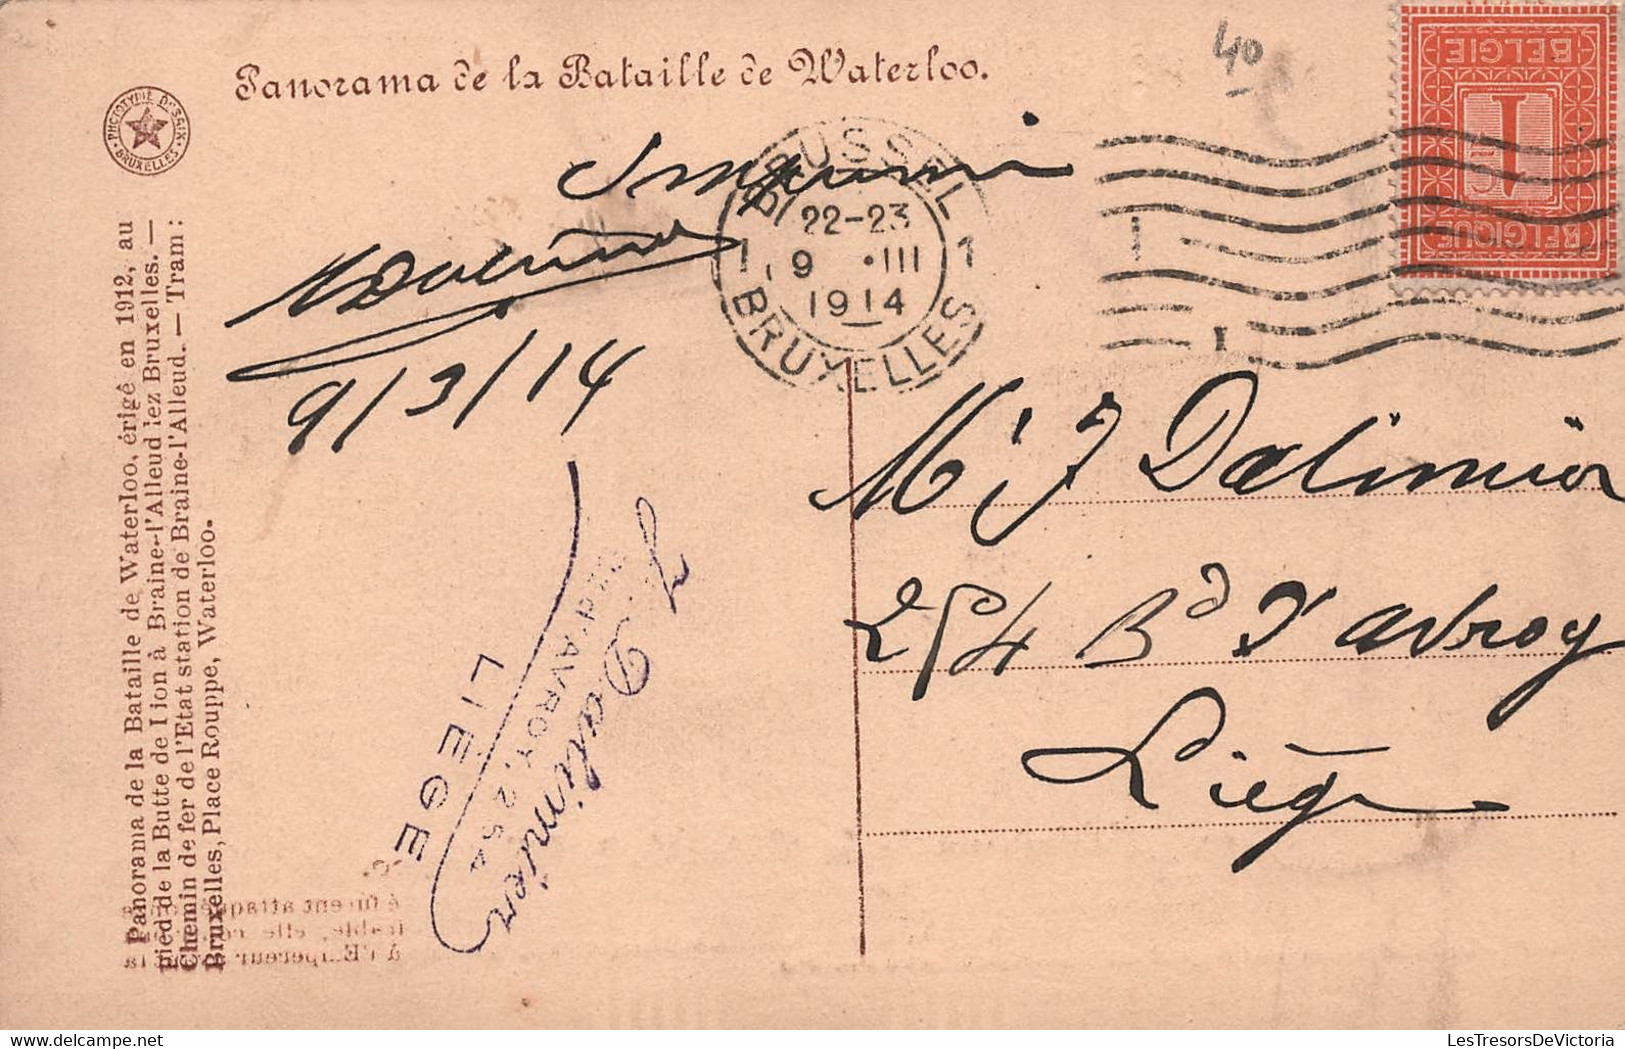 Panorama de la Bataille de Waterloo.
PHOTOTYPIE DESAIX
BRUXELLES
40
BELGIE
1
BELGIQUE
BRUSSEL
22-23
1 9 •III 1
1914
BRUXELLES
9/3/14
Mr J Dalimier
254 Bd d'avroy
Liège
J. Dalimier
Bd d'AVROY, 254
LIEGE
Panorama de la Bataille de Waterloo, érigé en 1912, au
pied de la Butte de Lion à Braine-l'Alleud lez Bruxelles. —
Chemin de fer de l'Etat station de Braine-l'Alleud. — Tram:
Bruxelles, Place Rouppe, Waterloo.
LesTresorsDeVictoria